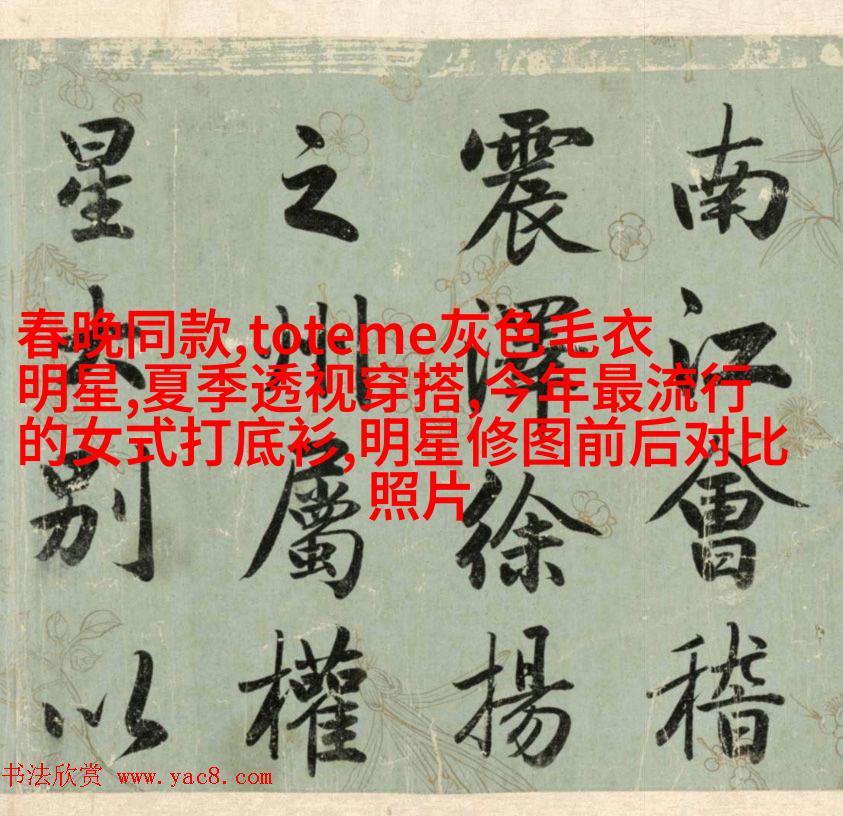 南江會稽
震澤徐揚
之州屬權
星別以
春晚同款,toteme灰色毛衣
明星,夏季透视穿搭,今年最流行
的女式打底衫,明星修图前后对比
照片
书法欣赏 www.yac8.com